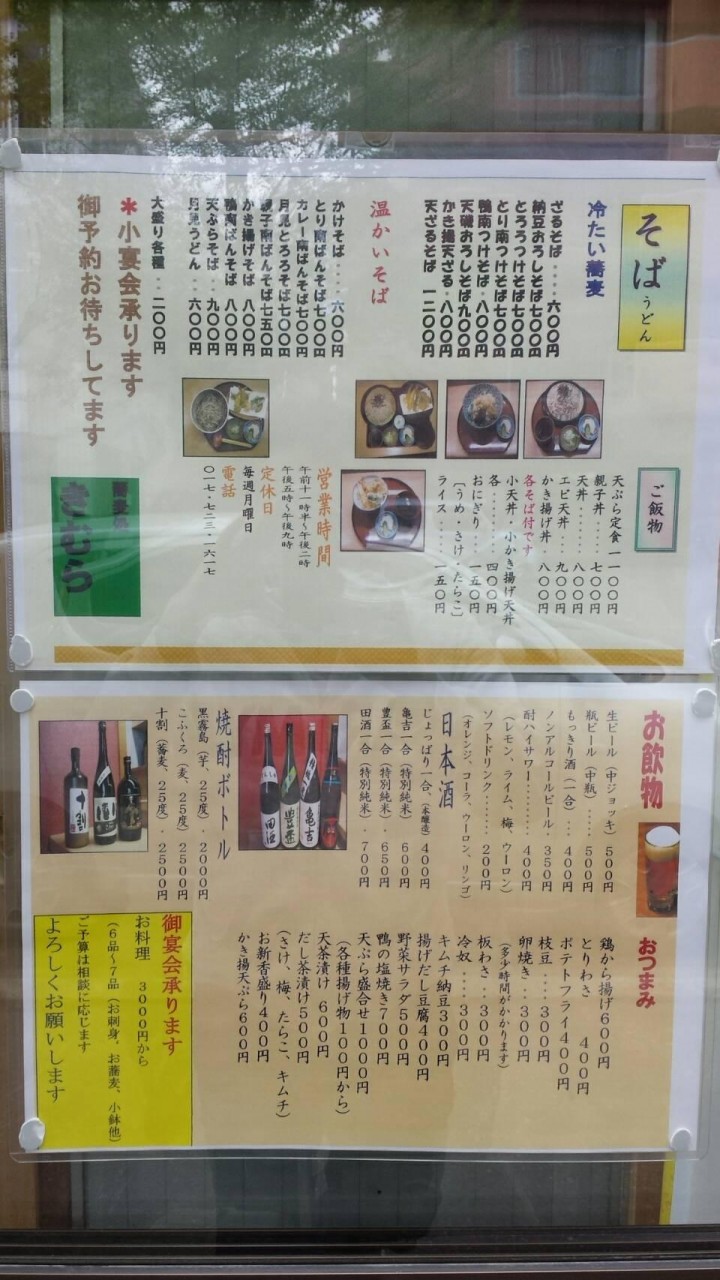 そば うどん
冷たい蕎麦
ざるそば・・・・六〇〇円
納豆おろしそば七〇〇円
とろろつけそば七〇〇円
とり南つけそば七〇〇円
鴨南つけそば・八〇〇円
天磯おろしそば九〇〇円
かき揚天ざる・八〇〇円
天ざるそば 一二〇〇円
温かいそば
かけそば・・・・六〇〇円
とり南ばんそば七〇〇円
カレー南ばんそば七〇〇円
月見とろろそば七〇〇円
親子南ばんそば七五〇円
かき揚げそば 八〇〇円
鴨南ばんそば 八〇〇円
天ぷらそば・・九〇〇円
月見うどん・・六〇〇円
大盛り各種・・二〇〇円
*小宴会承ります
御予約お待ちしてます
ご飯物
天ぷら定食 一一〇〇円
親子丼・・・・七〇〇円
天丼・・・・・八〇〇円
エビ天丼・・・九〇〇円
かき揚げ丼 八〇〇円
各そば付です
小天丼・小かき揚げ天丼
各・・・・・・四〇〇円
おにぎり・・・一五〇円
〔うめ・さけ・たらこ〕
ライス・・・・・一五〇円
営業時間
午前十一時半〜午後二時
午後五時〜午後九時
定休日
毎週月曜日
電話
〇一七・七二三・一六一七
きむら
お飲物
生ビール（中ジョッキ）５００円
瓶ビール（中瓶）・・・・５００円
もっきり酒（一合）・・・４００円
ノンアルコールビール・・３５０円
酎ハイサワー・・・・・・・４００円
（レモン、ライム、梅、ウーロン）
ソフトドリンク・・・・・・２００円
（オレンジ、コーラ、ウーロン、リンゴ）
日本酒
じょっぱり一合、（本醸造）４００円
亀吉一合（特別純米）・６００円
豊盃一合（特別純米）・６５０円
田酒一合（特別純米）・７００円
焼酎ボトル
黒霧島（芋、２５度）・２０００円
こふくろ（麦、２５度）２５００円
十割（蕎麦、２５度）・２５００円
おつまみ
鶏から揚げ６００円
とりわさ ４００円
ポテトフライ４００円
枝豆・・・・３００円
卵焼き・・３００円
（多少時間がかかります）
板わさ・・３００円
冷奴・・・３００円
キムチ納豆３００円
揚げだし豆腐４００円
野菜サラダ５００円
鴨の塩焼き７００円
天ぷら盛合せ１０００円
（各種揚げ物１００円から）
天茶漬け ６００円
だし茶漬け５００円
（さけ、梅、たらこ、キムチ）
お新香盛り４００円
かき揚天ぷら６００円
御宴会承ります
お料理 ３０００円から
（６品〜７品（お刺身、お蕎麦、小鉢他）
ご予算は相談に応じます
よろしくお願いします
十割
亀吉
豊盃
田酒